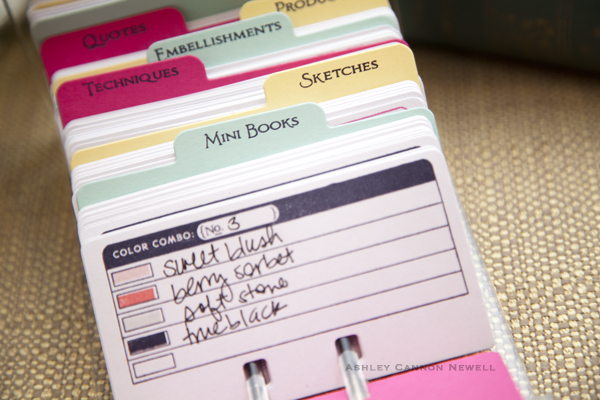 PRODU
QUOTES
EMBELLISHMENTS
TECHNIQUES
SKETCHES
MINI BOOKS
COLOR COMBO: No. 3
sweet blush
berry sorbet
soft stone
true black
ASHLEY CANNON NEWELL